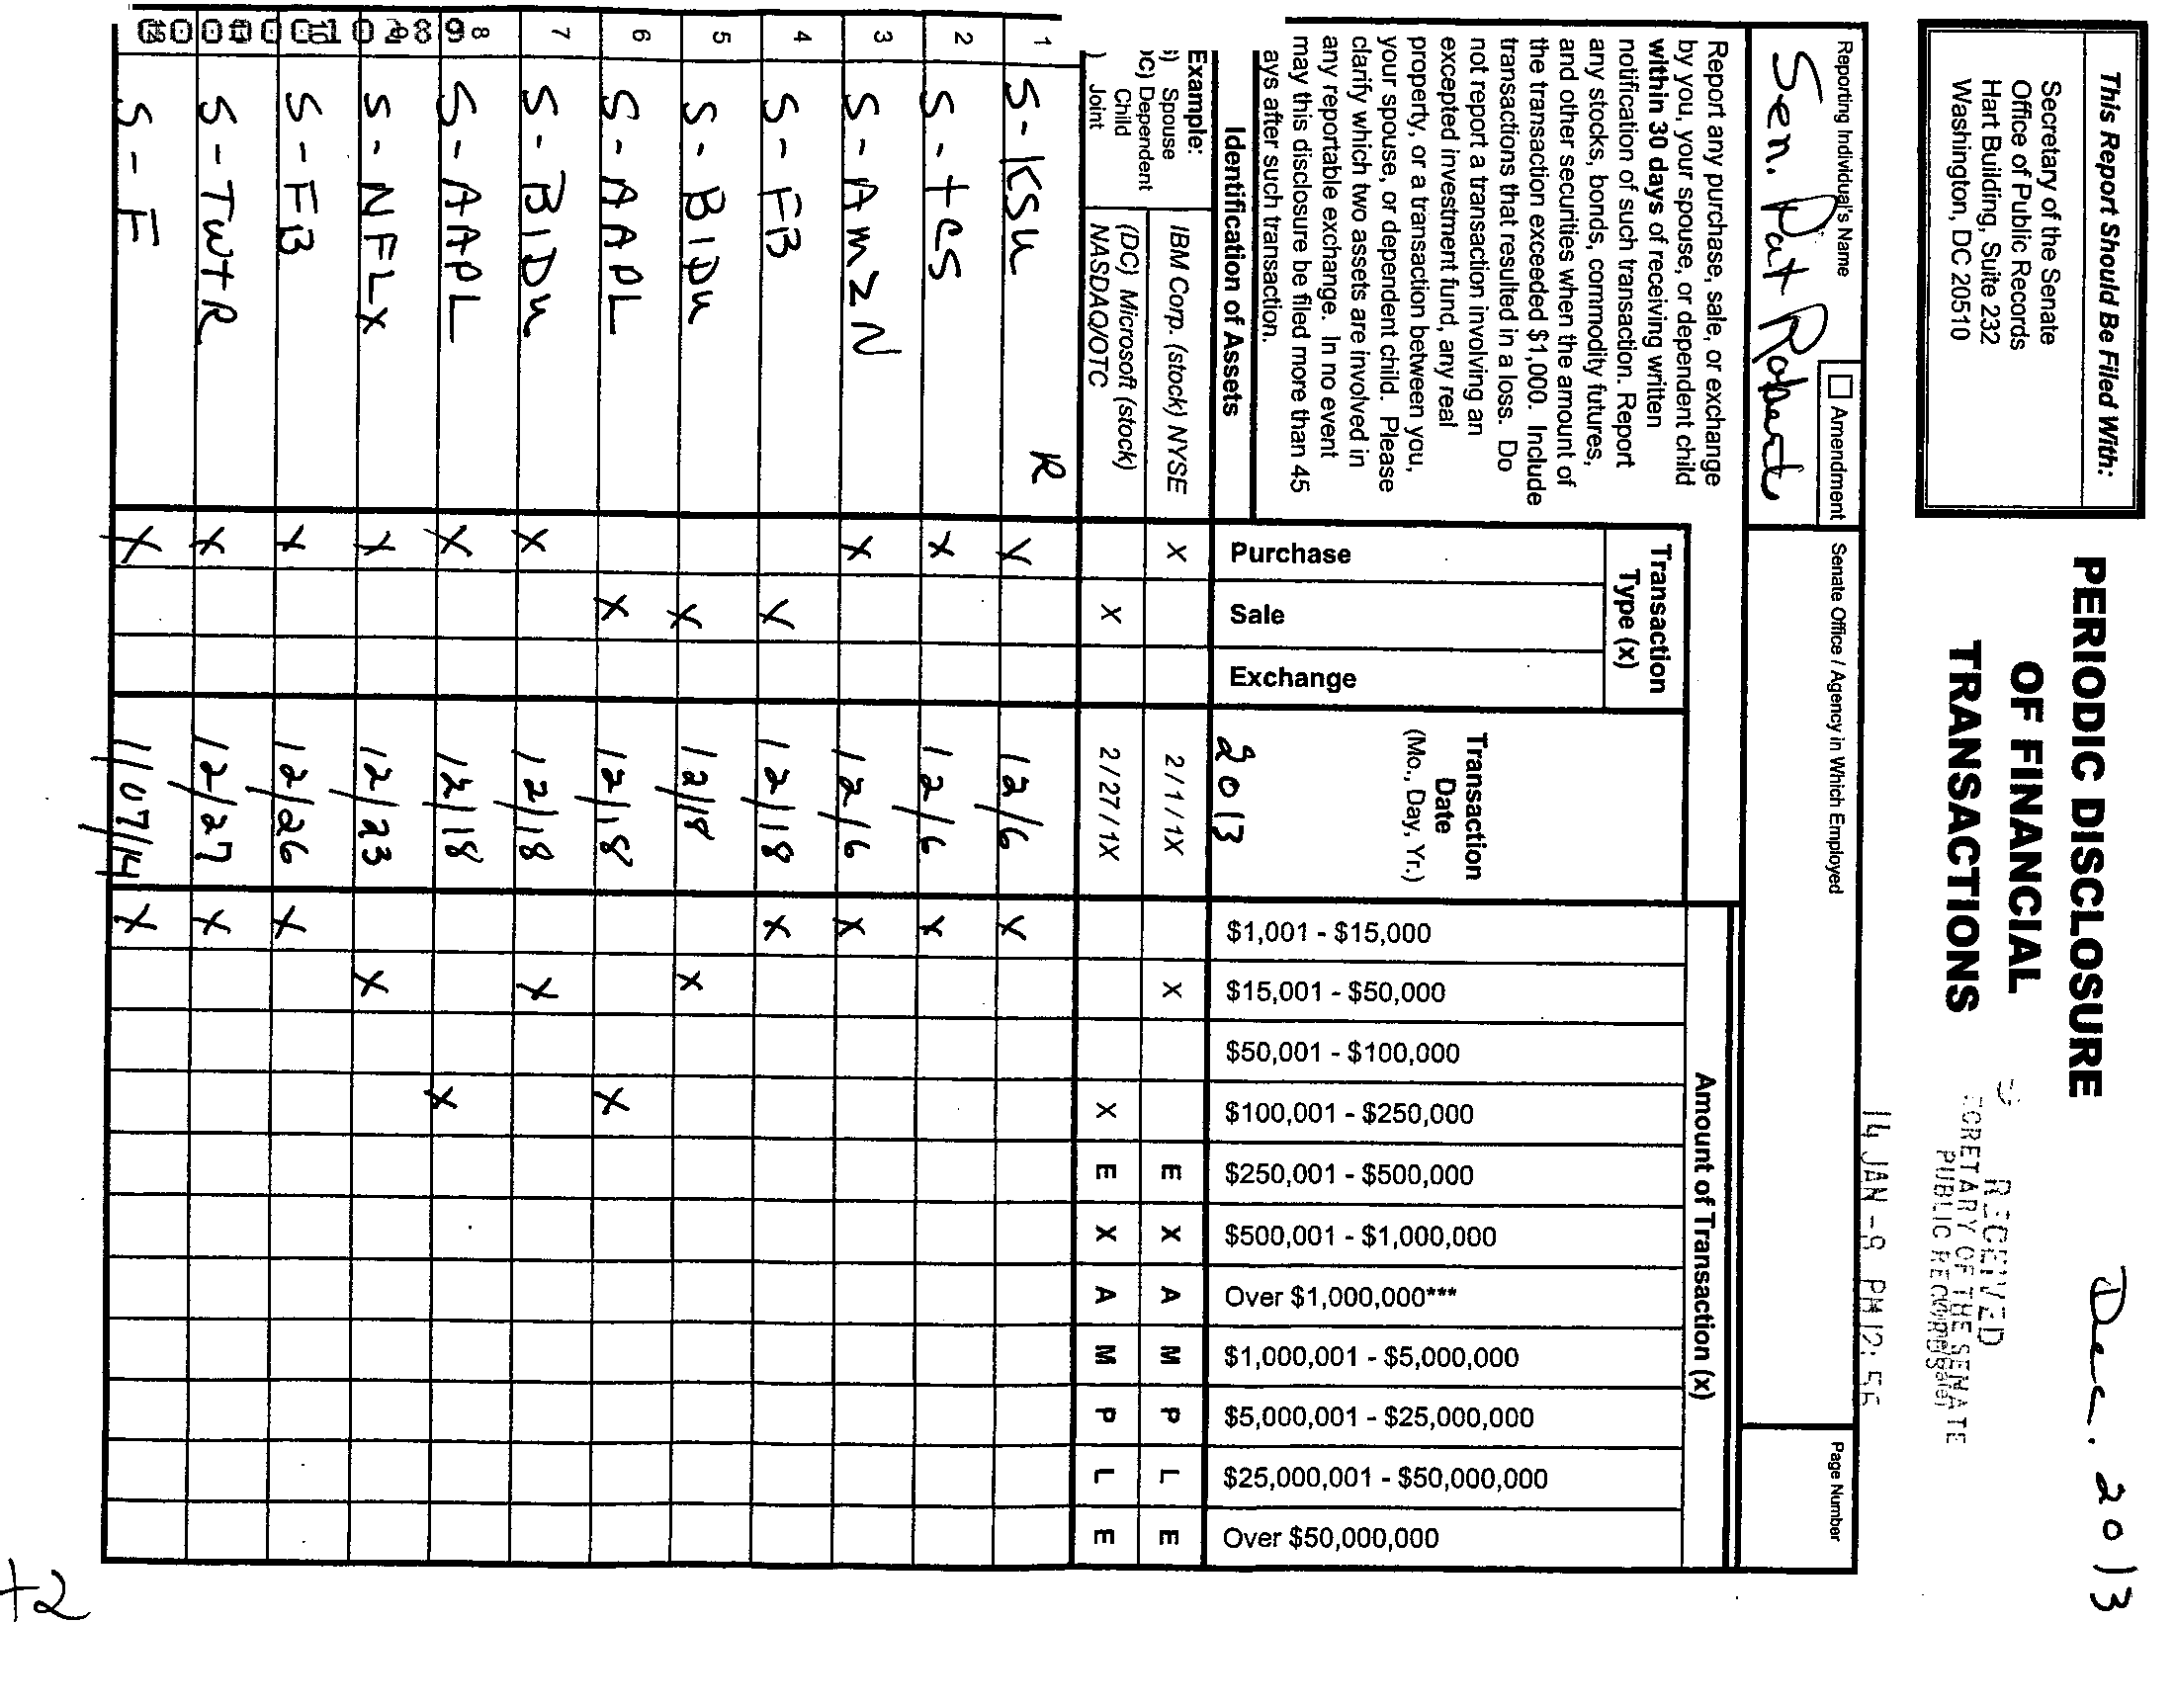 Dec. 2013
This Report Should Be Filed With:
Secretary of the Senate
Office of Public Records
Hart Building, Suite 232
Washington, DC 20510
PERIODIC DISCLOSURE
OF FINANCIAL
TRANSACTIONS
RECEIVED
SECRETARY OF THE SENATE
PUBLIC RECORDS
14 JAN -8 PM 12: 56
Reporting Individual's Name
Amendment
Senate Office / Agency in Which Employed
Page Number
Sen. Pat Roberts
Report any purchase, sale, or exchange
by you, your spouse, or dependent child
within 30 days of receiving written
notification of such transaction. Report
any stocks, bonds, commodity futures,
and other securities when the amount of
the transaction exceeded $1,000. Include
transactions that resulted in a loss. Do
not report a transaction involving an
excepted investment fund, any real
property, or a transaction between you,
your spouse, or dependent child. Please
clarify which two assets are involved in
any reportable exchange. In no event
may this disclosure be filed more than 45
ays after such transaction.
Identification of Assets
Transaction
Type (x)
Purchase
Sale
Exchange
Transaction
Date
(Mo., Day, Yr.)
2013
Amount of Transaction (x)
$1,001 - $15,000
$15,001 - $50,000
$50,001 - $100,000
$100,001 - $250,000
$250,001 - $500,000
$500,001 - $1,000,000
Over $1,000,000***
$1,000,001 - $5,000,000
$5,000,001 - $25,000,000
$25,000,001 - $50,000,000
Over $50,000,000
Example:
) Spouse
)C) Dependent
Child
) Joint
IBM Corp. (stock) NYSE X 2/1/1X X E X A M P L E
(DC) Microsoft (stock)
NASDAQ/OTC X 2/27/1X X E X A M P L E
R
1 S-KSU X 12/6 X
2 S-tCS X 12/6 X
3 S-AMZN X 12/6 X
4 S-FB X 12/18 X
5 S-BIDU X 12/18 X
6 S-AAPL X 12/18 X
7 S-BIDU X 12/18 X
8 S-AAPL X 12/18 X
9 S-NFLX X 12/23 X
S-FB X 12/26 X
S-TWTR X 12/27 X
S-F X 1/07/14 X
+2